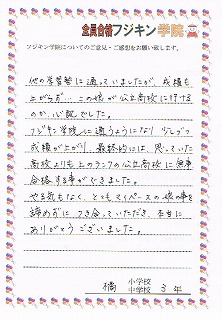 全員合格フジキン学院
フジキン学院についてのご意見・ご感想をお願い致します。
他の学習塾に通っていましたが、成績も
上がらず… この娘が公立高校に行ける
のか心配でした。
フジキン学院に通うようになり 少しずつ
成績が上がり、最終的には、思っていた
高校よりも上のランクの公立高校に無事
合格する事ができました。
やる気もなく、とてもマイペースの娘の事を
諦めずに つき合っていただき、本当に
ありがとうございました。
橘 小学校
中学校 3年